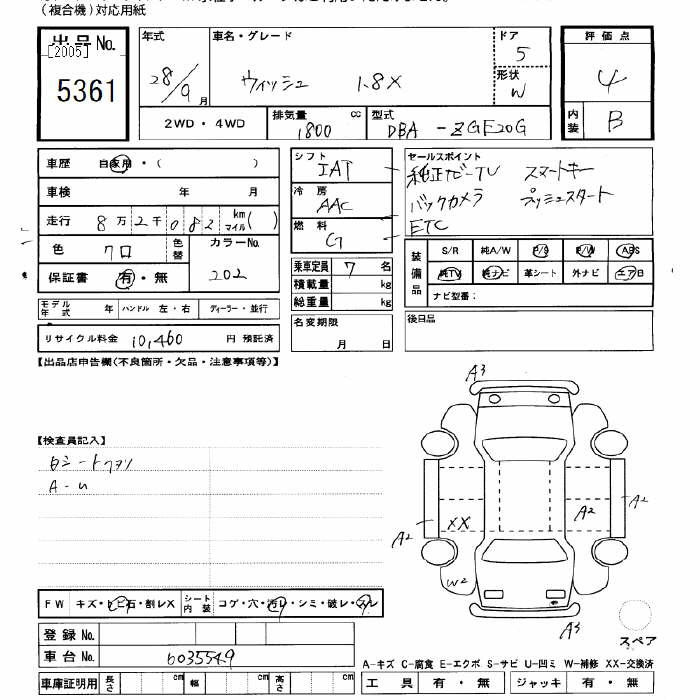 （複合機）対応用紙
出品No.
[2005]
5361
年式
28/9 月
車名・グレード
ウィッシュ 1.8X
ドア
5
形状
W
評価点
4
内装
B
2WD・4WD
排気量 1800 cc
型式 DBA-ZGE20G
車歴 自家用・( )
車検 年 月
走行 8万2千082 km マイル( )
色 クロ
色替
カラーNo. 202
保証書 有・無
モデル年式 年 ハンドル 左・右 ディーラー・並行
リサイクル料金 10,460 円 預託済
シフト IAT
冷房 AAC
燃料 G
乗車定員 7 名
積載量 kg
総重量 kg
名変期限
月 日
セールスポイント
純正ナビーTV スマートキー
バックカメラ プッシュスタート
ETC
装備品
S/R 純A/W P/S P/W ABS
純TV 純ナビ 革シート 外ナビ エアB
ナビ型番：
後日品
【出品店申告欄(不良箇所・欠品・注意事項等)】
【検査員記入】
A-U
A3
A2
A2
A2
XX
W2
A3
スペア
FW キズ・トビ石・割レX
シート内装 コゲ・穴・汚レ・シミ・破レ・スレ
登録No.
車台No. 6035549
車庫証明用 長さ cm 幅 cm 高さ cm
A-キズ C-腐食 E-エクボ S-サビ U-凹ミ W-補修 XX-交換済
工具 有・無 ジャッキ 有・無